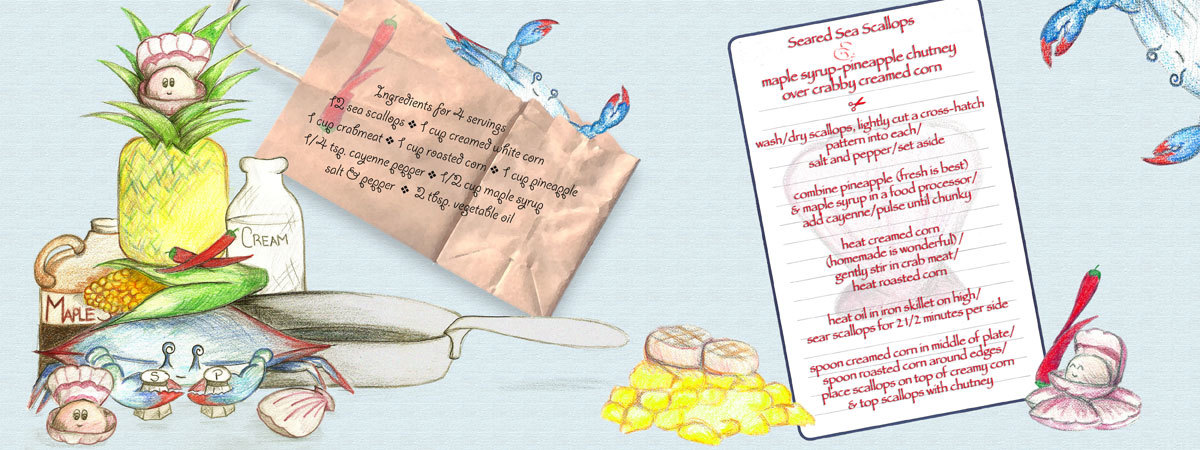 Ingredients for 4 servings
12 sea scallops ❖ 1 cup creamed white corn
1 cup crabmeat ❖ 1 cup roasted corn ❖ 1 cup pineapple
1/4 tsp. cayenne pepper ❖ 1/2 cup maple syrup
salt & pepper ❖ 2 tbsp. vegetable oil
CREAM
MAPLE
S
P
Seared Sea Scallops
&
maple syrup-pineapple chutney
over crabby creamed corn
wash/dry scallops, lightly cut a cross-hatch
pattern into each/
salt and pepper/set aside
combine pineapple (fresh is best)
& maple syrup in a food processor/
add cayenne/pulse until chunky
heat creamed corn
(homemade is wonderful)/
gently stir in crab meat/
heat roasted corn
heat oil in iron skillet on high/
sear scallops for 2 1/2 minutes per side
spoon creamed corn in middle of plate/
spoon roasted corn around edges/
place scallops on top of creamy corn
& top scallops with chutney